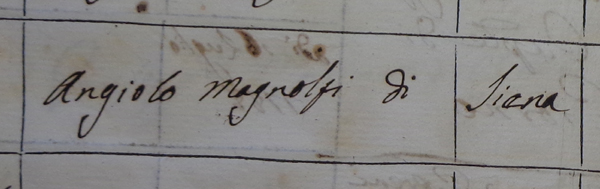 Angiolo Magnolfi di Siena